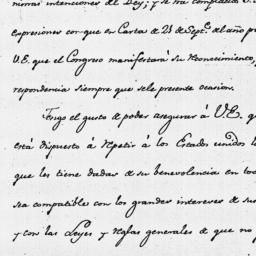 nimas intenciones del Rey; y se ha complacido
expresiones con que en Carta de 21 de Sept.e del año p
V.E. que el Congreso manifestará su Reconocimiento,
respondencia siempre que se le presente ocasion.
Tengo el gusto de poder asegurar á V.E. q
está dispuesto á Repetir á los Estados unidos l
que les tiene dadas de su benevolencia en to
sea compatible con los grandes intereses de sus
y con las Leyes y Reglas generales de que no p